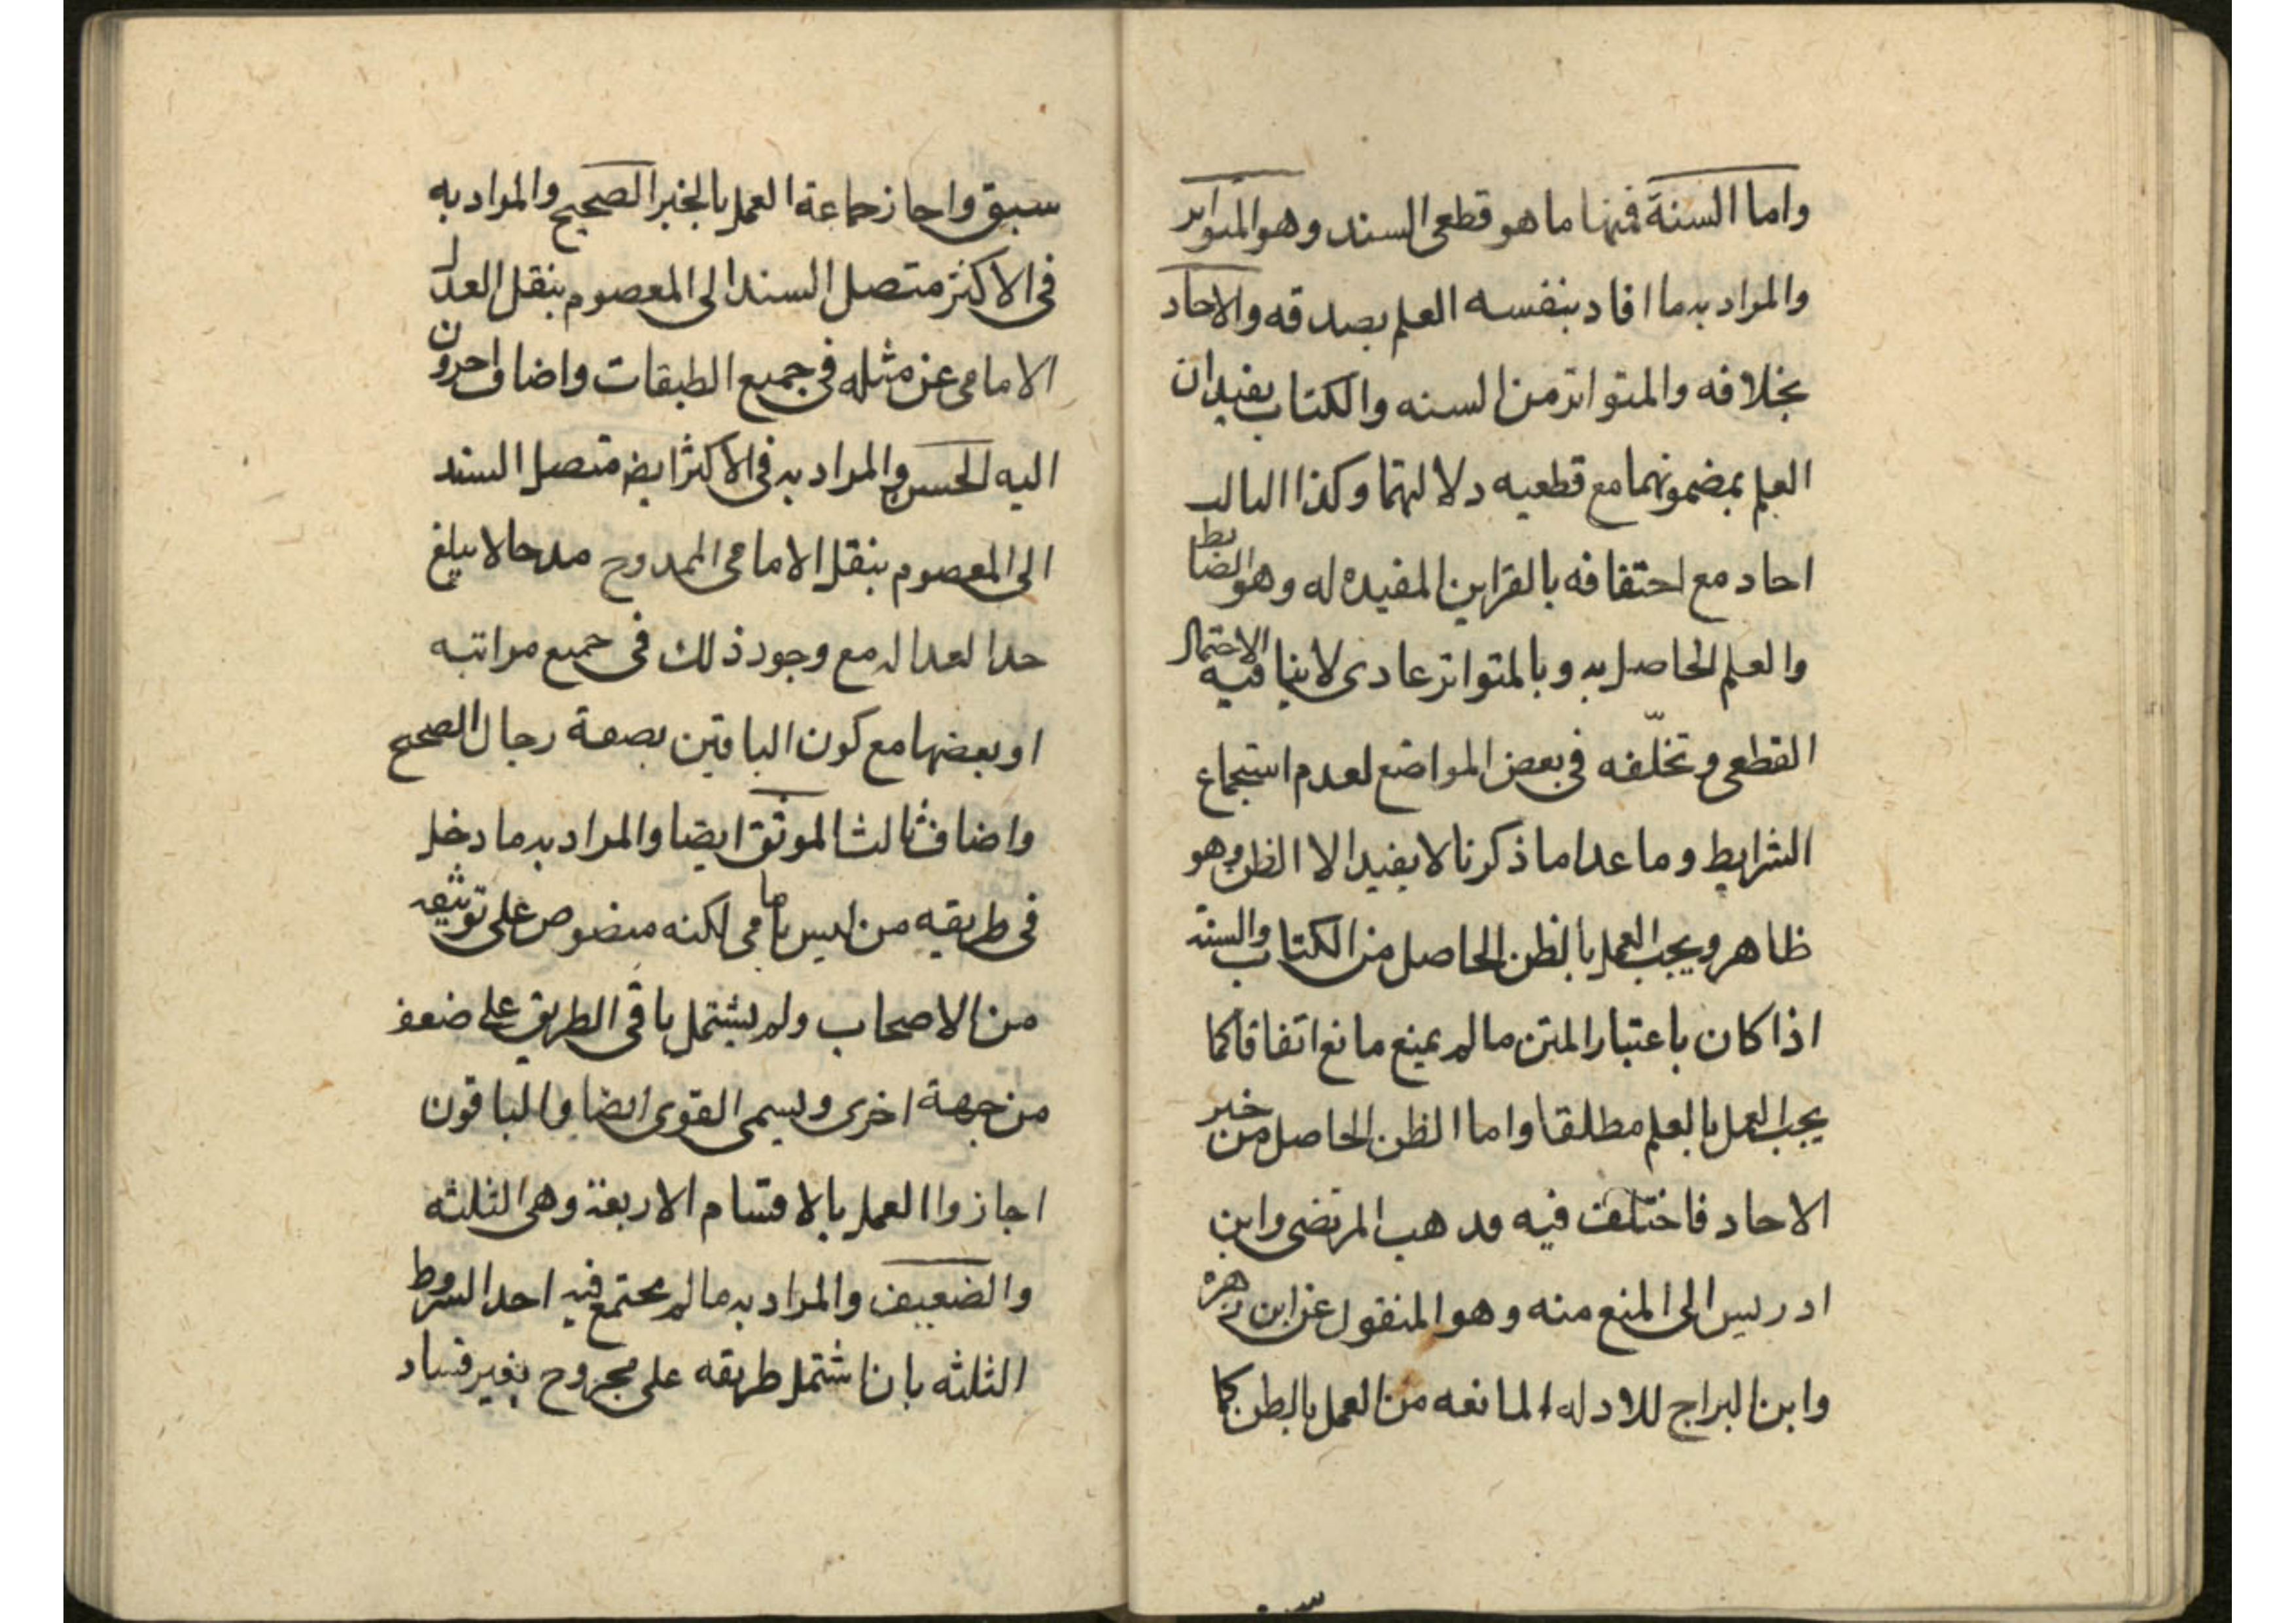 واما السنة فمنها ما هو قطعى السند وهو المتواتر
والمراد به ما افاد بنفسه العلم بصدقه والاحاد
بخلافه والمتواتر من السنه والكتاب يفيدان
العلم بمضمونهما مع قطعيه دلالتهما وكذا
احاد مع احتفافه بالقراين المفيده له وهو الضابط
والعلم الحاصل به وبالمتواتر عادى لا ينافيه الاحتمال
القطعى وتخلّفه فى بعض المواضع لعدم استجماع
الشرايط وما عدا ما ذكرنا لا يفيد الا الظن وهو
ظاهر ويجب العمل بالظن الحاصل من الكتاب والسنة
اذا كان باعتبار المتن ما لم يمنع مانع اتفاقا كما
يجب العمل بالعلم مطلقا واما الظن الحاصل من خبر
الاحاد فاختلف فيه فذهب المرتضى وابن
ادريس الى المنع منه وهو المنقول عن ابن زهره
وابن البراج للادله المانعه من العمل بالظن كما
سبق
سبق واجاز جماعة العمل بالخبر الصحيح والمراد به
فى الاكثر متصل السند الى المعصوم بنقل العدل
الامامى عن مثله فى جميع الطبقات واضاف اخرون
اليه الحسن والمراد به فى الاكثر ايض متصل السند
الى المعصوم بنقل الامامى الممدوح مدحا لا يبلغ
حد العداله مع وجود ذلك فى جميع مراتبه
او بعضها مع كون الباقين بصفة رجال الصحيح
واضاف ثالث الموثق ايضا والمراد به ما دخل
فى طريقه من ليس بامامى لكنه منصوص على توثيقه
من الاصحاب ولم يشتمل باقى الطريق على ضعف
من جهة اخرى ويسمى القوى ايضا والباقون
اجازوا العمل بالاقسام الاربعة وهى الثلثه
والضعيف والمراد به ما لم يجتمع فيه احد الشروط
الثلثه بان اشتمل طريقه على مجروح بغير فساد